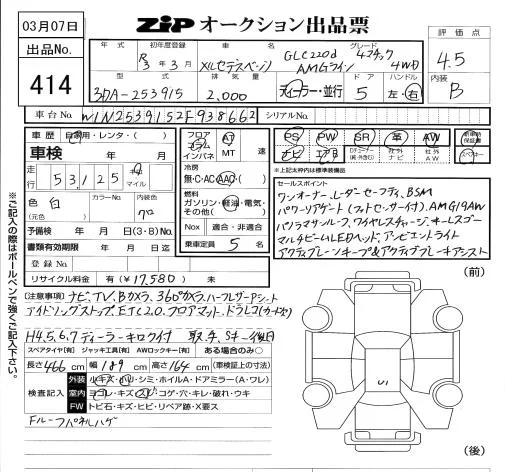 03月07日
ZIP オークション出品票
評価点
4.5
出品No.
414
年式 初年度登録 車名 グレード
R3年3月 メルセデスベンツ GLC220d 4マチック
AMGライン 4WD
型式 排気量 ドア ハンドル
3DA-253915 2,000 ディーラー・並行 5 左・右
内装
B
車台No. W1N2539152F938662 シリアルNo.
車歴 自家用・レンタ・( )
車検 年 月
走行 53,125 km マイル
色 白 カラーNo. 内装色 クロ
(元色)
予備検 年 月 日(3・8)No.
書類有効期限 年 月 日迄
登録No.
リサイクル料金 有(¥17,580) 無
フロア AT
コラム
インパネ MT 速
冷房
無・C・AC・AAC・( )
燃料
ガソリン・軽油・電気・
その他( )
Nox 適合・非適合
乗車定員 5 名
PS PW SR 革 AW 新車時保証書
ナビ エアB Dチューナー(純・外含む) 社外ナビ 社外AW スペアキー
※上記太枠内は標準装備品
セールスポイント
ワンオーナー、レーダーセーフティ、BSM
パワーリアゲート(フットセンサー付)、AMG19AW
パノラマサンルーフ、ワイヤレスチャージ、キーレスゴー
マルチビームLEDヘッド、アンビエントライト
アクティブレーンキープ&アクティブブレーキアシスト
(注意事項) ナビ、TV、Bカメラ、360°カメラ、ハーフレザーPシート
アイドリングストップ、ETC2.0、フロアマット、ドラレコ(カード欠)
H4,5,6,7 ディーラーキロク付 取・手、Sキー後日
スペアタイヤ[有] ジャッキ工具[有] AWロックキー[有] ある場合のみ○
長さ 466 cm 幅 189 cm 高さ 164 cm (車検証上の寸法)
検査記入 外装 小キズ・小凹・シミ・ホイルA・ドアミラー(A・ワレ)
室内 ヨゴレ・キズ・スレ・コゲ・穴・キレ・破れ・ウキ
FW トビ石・キズ・ヒビ・リペア跡・X要ス
Fルーフパネルハゲ
(前)
(後)
※ご記入の際はボールペンで強くご記入下さい。